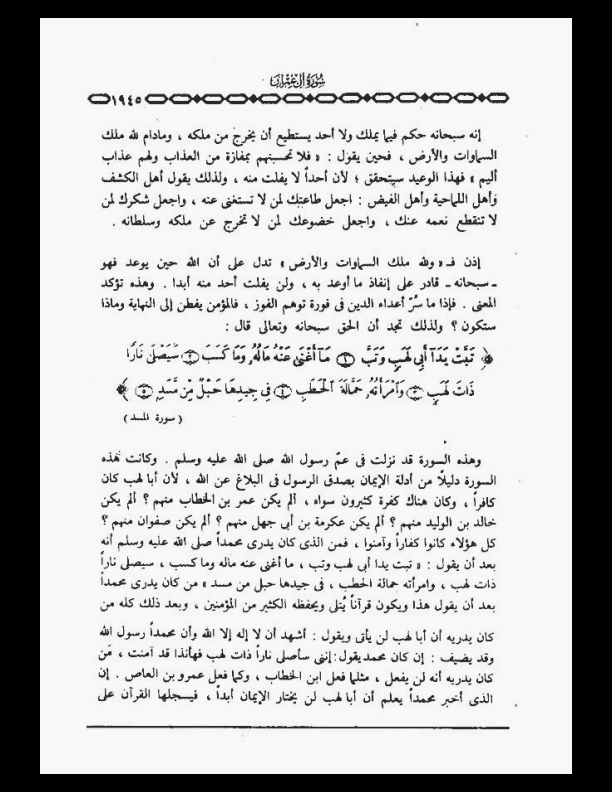 سورة آل عمران
١٩٤٥
إنه سبحانه حكم فيما يملك ولا أحد يستطيع أن يخرج من ملكه ، ومادام لله ملك
السماوات والأرض ، فحين يقول : « فلا تحسبنهم بمفازة من العذاب ولهم عذاب
أليم » فهذا الوعيد سيتحقق ؛ لأن أحداً لا يفلت منه ، ولذلك يقول أهل الكشف
وأهل اللماحية وأهل الفيض : اجعل طاعتك لمن لا تستغنى عنه ، واجعل شكرك لمن
لا تنقطع نعمه عنك ، واجعل خضوعك لمن لا تخرج عن ملكه وسلطانه .
إذن فـ « ولله ملك السماوات والأرض » تدل على أن الله حين يوعد فهو
ـ سبحانه ـ قادر على إنفاذ ما أوعد به ، ولن يفلت أحد منه أبدا . وهذه تؤكد
المعنى . فإذا ما سُرّ أعداء الدين فى فورة توهم الفوز ، فالمؤمن يفطن إلى النهاية وماذا
ستكون ؟ ولذلك تجد أن الحق سبحانه وتعالى قال :
﴿ تَبَّتْ يَدَآ أَبِى لَهَبٍ وَتَبَّ ۝١ مَآ أَغْنَىٰ عَنْهُ مَالُهُۥ وَمَا كَسَبَ ۝٢ سَيَصْلَىٰ نَارًا
ذَاتَ لَهَبٍ ۝٣ وَٱمْرَأَتُهُۥ حَمَّالَةَ ٱلْحَطَبِ ۝٤ فِى جِيدِهَا حَبْلٌ مِّن مَّسَدٍۭ ۝٥ ﴾
( سورة المسد )
وهذه السورة قد نزلت فى عمّ رسول الله صلى الله عليه وسلم . وكانت هذه
السورة دليلًا من أدلة الإيمان بصدق الرسول فى البلاغ عن الله ، لأن أبا لهب كان
كافراً ، وكان هناك كفرة كثيرون سواه ، ألم يكن عمر بن الخطاب منهم ؟ ألم يكن
خالد بن الوليد منهم ؟ ألم يكن عكرمة بن أبى جهل منهم ؟ ألم يكن صفوان منهم ؟
كل هؤلاء كانوا كفاراً وآمنوا ، فمن الذى كان يدرى محمداً صلى الله عليه وسلم أنه
بعد أن يقول : « تبت يدا أبى لهب وتب ، ما أغنى عنه ماله وما كسب ، سيصلى ناراً
ذات لهب ، وامرأته حمالة الحطب ، فى جيدها حبل من مسد » من كان يدرى محمداً
بعد أن يقول هذا ويكون قرآناً يُتلى ويحفظه الكثير من المؤمنين ، وبعد ذلك كله من
كان يدريه أن أبا لهب لن يأتى ويقول : أشهد أن لا إله إلا الله وأن محمداً رسول الله
وقد يضيف : إن كان محمد يقول : إننى سأصلى ناراً ذات لهب فهأنذا قد آمنت ، مَن
كان يدريه أنه لن يفعل ، مثلما فعل ابن الخطاب ، وكما فعل عمرو بن العاص . إن
الذى أخبر محمداً يعلم أن أبا لهب لن يختار الإيمان أبداً ، فيسجلها القرآن على